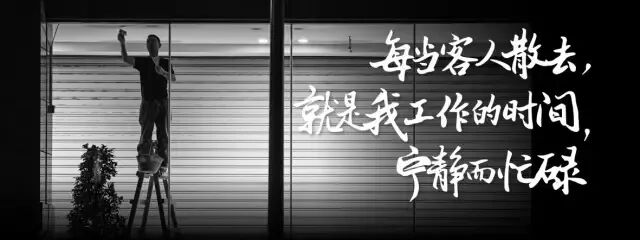 每当客人散去，
就是我工作的时间，
宁静而忙碌